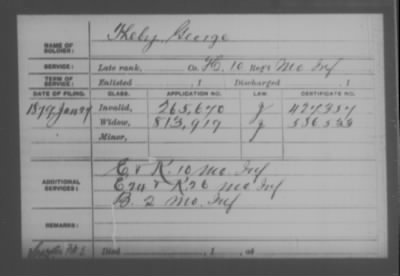 NAME OF SOLDIER: Kely, George
SERVICE: Late rank, Co. H, 10 Reg't Mo Inf
TERM OF SERVICE: Enlisted , 1 Discharged , 1
DATE OF FILING. CLASS. APPLICATION NO. LAW. CERTIFICATE NO.
1879 Jan Invalid, 265,670
Widow, 813,917
Minor,
ADDITIONAL SERVICES: E & K. 10 Mo Inf
E 24 & K. 26 Mo Inf
B. 2 Mo. Inf
REMARKS:
Died , 1 , at